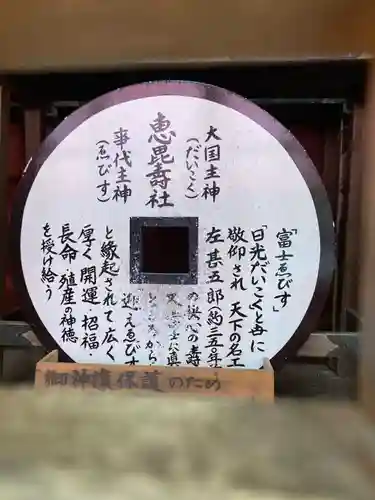 恵毘壽社
大国主神
(だいこく)
事代主神
(ゑびす)
「富士ゑびす」
日光だいこくと共に
敬仰され 天下の名工
左甚五郎(約三五〇年
の
迎えゑびす
と縁起されて広く
厚く 開運・招福・
長命・殖産の神徳
を授け給う
御神像保護のため